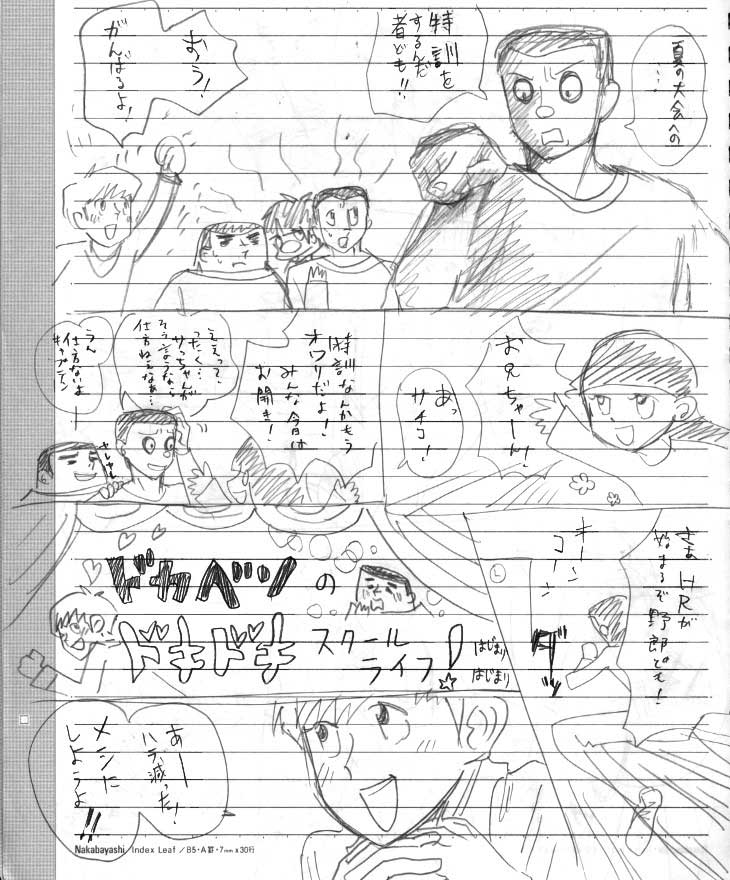 夏の大会への
…
特訓を
するんだ
者ども!!
おう!
がんばるよ!
お兄ちゃーん!
あっ
サチコ!
特訓なんかもう
オワリだよ!
みんな今日は
お開き!
ええって、
ったく…
サっちゃんが
そう言うなら
仕方ねえなぁ…
やれやれ
うん
仕方ないよー
キャプテン
さあHRが
始まるぞ野郎ども!
キーン
コーン
ダ!
ドカベンの
ドキドキスクール
ライフ!
はじまり
はじまり
あー
ハラ減った!
メシに
しようよ!!
Nakabayashi Index Leaf / B5・A罫・7mm x 30行